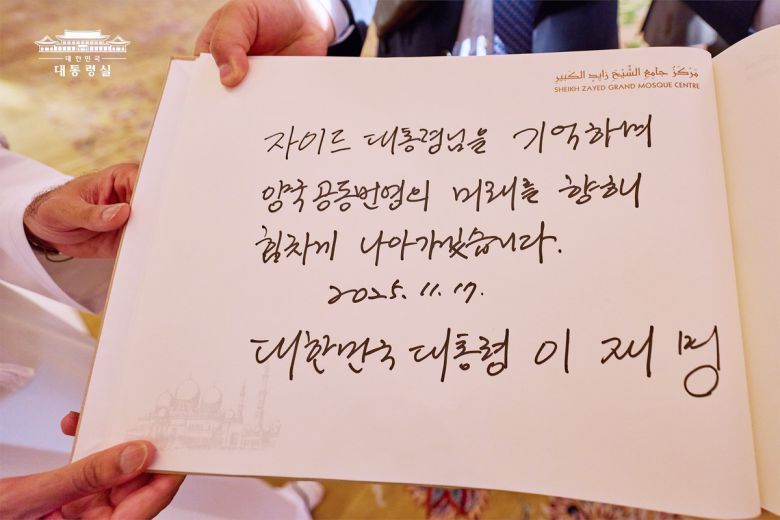 대한민국
대통령실
مركز جامع الشيخ زايد الكبير
SHEIKH ZAYED GRAND MOSQUE CENTRE
자이드 대통령님을 기억하며
양국 공동번영의 미래를 향해
힘차게 나아가겠습니다.
2025. 11. 17.
대한민국 대통령 이 재 명